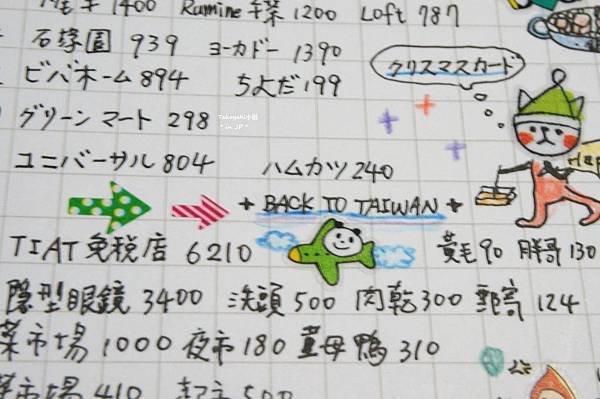 1400 Rumine 手袋 1200 Loft 787
石塚園 939 ヨーカドー 1390
クリスマスカード
ビバホーム 894 ちよだ 199
グリーンマート 298
Takoyaki小姐
* in JP *
ユニバーサル 804 ハムカツ 240
+ BACK TO TAIWAN +
TIAT免税店 6210 黃毛 90 胖哥 130
隱型眼鏡 3400 洗頭 500 肉乾 300 郵寄 124
菜市場 1000 夜市 180 薑母鴨 310
菜市場 410 500